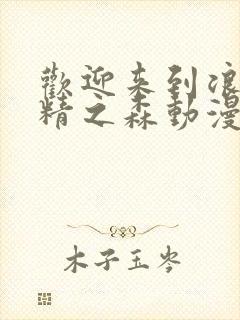 歡迎来到浪
精之森動漫
木子玉岑